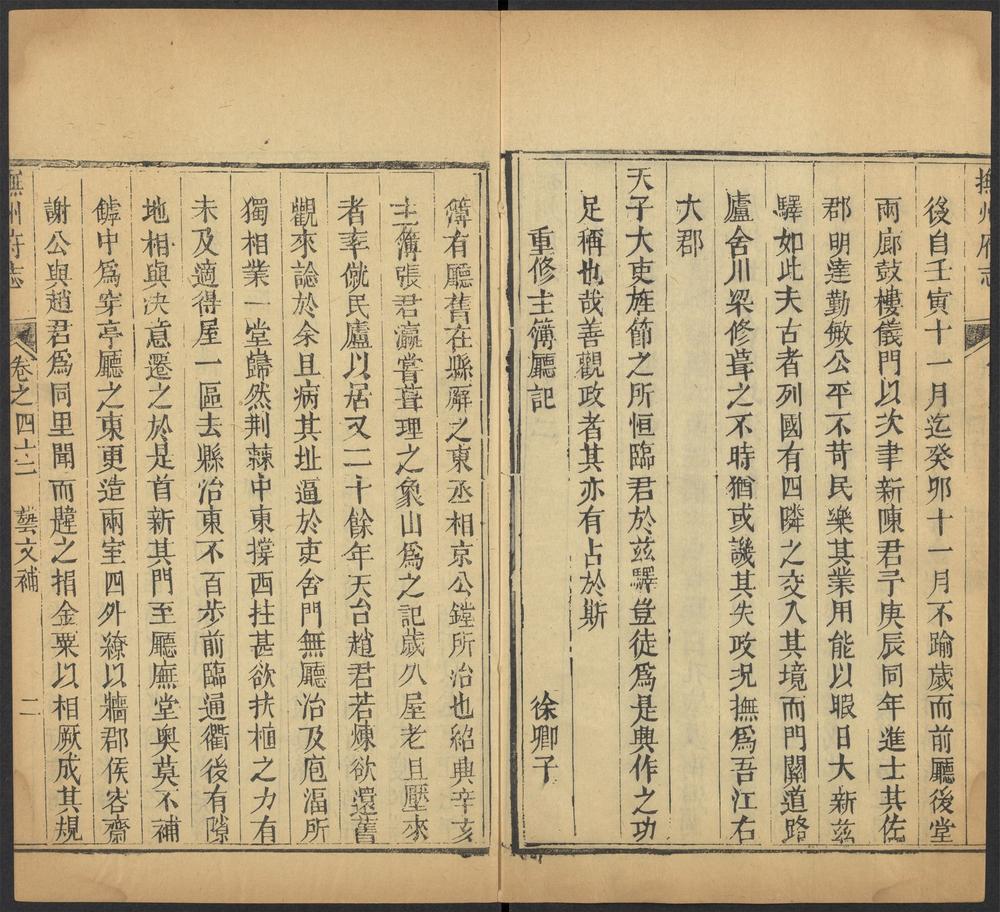 撫州府志
後自壬寅十一月迄癸卯十一月不踰歲而前廳後堂
兩廊鼓樓儀門以次聿新陳君子庚辰同年進士其佐
郡明達勤敏公平不苛民樂其業用能以暇日大新茲
驛如此夫古者列國有四隣之交入其境而門關道路
廬舍川梁修葺之不時猶或譏其失政況撫為吾江右
大郡
天子大吏旌節之所恒臨君於茲驛豈徒為是典作之功
足稱也哉善觀政者其亦有占於斯
重修主簿廳記 徐卿子
簿有廳舊在縣廨之東丞相京公鏜所治也紹興辛亥
主簿張君瀛嘗葺理之象山為之記歲久屋老且壓來
者率僦民廬以居又二十餘年天台趙君若煉欲還舊
觀來諗於余且病其址逼於吏舍門無廳治及庖湢所
獨相業一堂巋然荆蕀中東撐西拄甚欲扶植之力有
未及適得屋一區去縣治東不百步前臨通衢後有隙
地相與决意遷之於是首新其門至廳廡堂奥莫不補
罅中為穿亭廳之東更造兩室四外繚以牆郡侯峇齋
謝公與趙君為同里聞而韙之捐金粟以相厥成其規
撫州府志 卷之四十二 藝文補 二